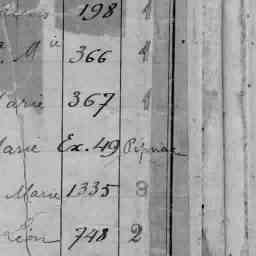 198 1
Mie 366 1
Marie 367 1
Marie Ex. 49
Marie 1335 3
Léon 748 2